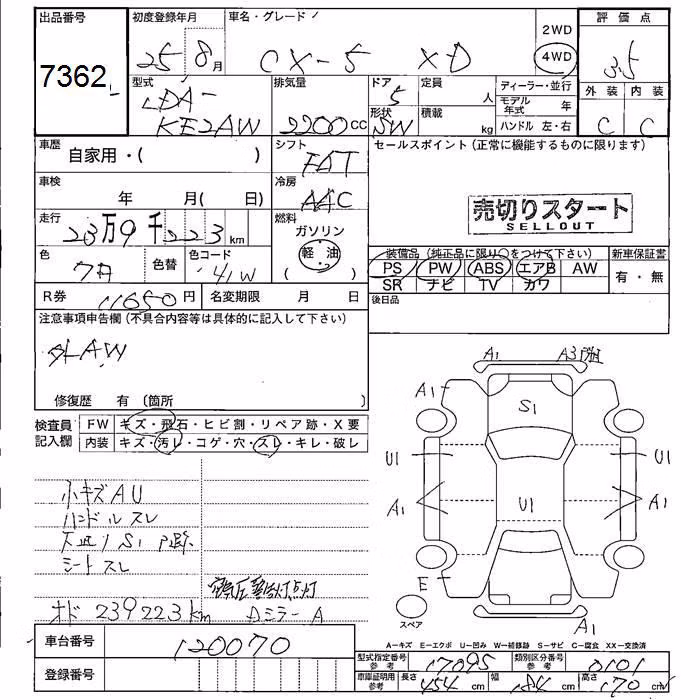 出品番号
7362
初度登録年月
25 8月
車名・グレード
CX-5 XD
2WD
4WD
評価点
3.5
外装 内装
C C
型式
LDA-
KE2AW
排気量
2200CC
ドア
5
形状
SW
定員
人
積載
kg
ディーラー・並行
モデル年式 年
ハンドル 左・右
車歴
自家用・( )
シフト
FAT
車検
年 月( 日)
冷房
AAC
走行
23万9千223km
燃料
ガソリン
(軽油)
色
色替
色コード
41W
R券 11650円
名変期限 月 日
セールスポイント(正常に機能するものに限ります)
売切りスタート
SELLOUT
装備品(純正品に限り○をつけて下さい)
PS PW ABS エアB AW
SR ナビ TV カワ
新車保証書
有・無
後日品
注意事項申告欄(不具合内容等は具体的に記入して下さい)
修復歴 有 (箇所
検査員記入欄
FW キズ・飛石・ヒビ割・リペア跡・X要
内装 キズ・汚レ・コゲ・穴・スレ・キレ・破レ
小キズAU
ハンドルスレ
シートスレ
オド 239223km
Dミラー A
A1 A3
A1
S1
U1 U1
A1 U1 A1
E
スペア
A1
A-キズ E-エクボ U-凹み W-補修跡 S-サビ C-腐食 XX-交換済
車台番号
120070
登録番号
型式指定番号参考
17095
類別区分番号参考
0101
車庫証明用参考
長さ 454cm 幅 184cm 高さ 170cm